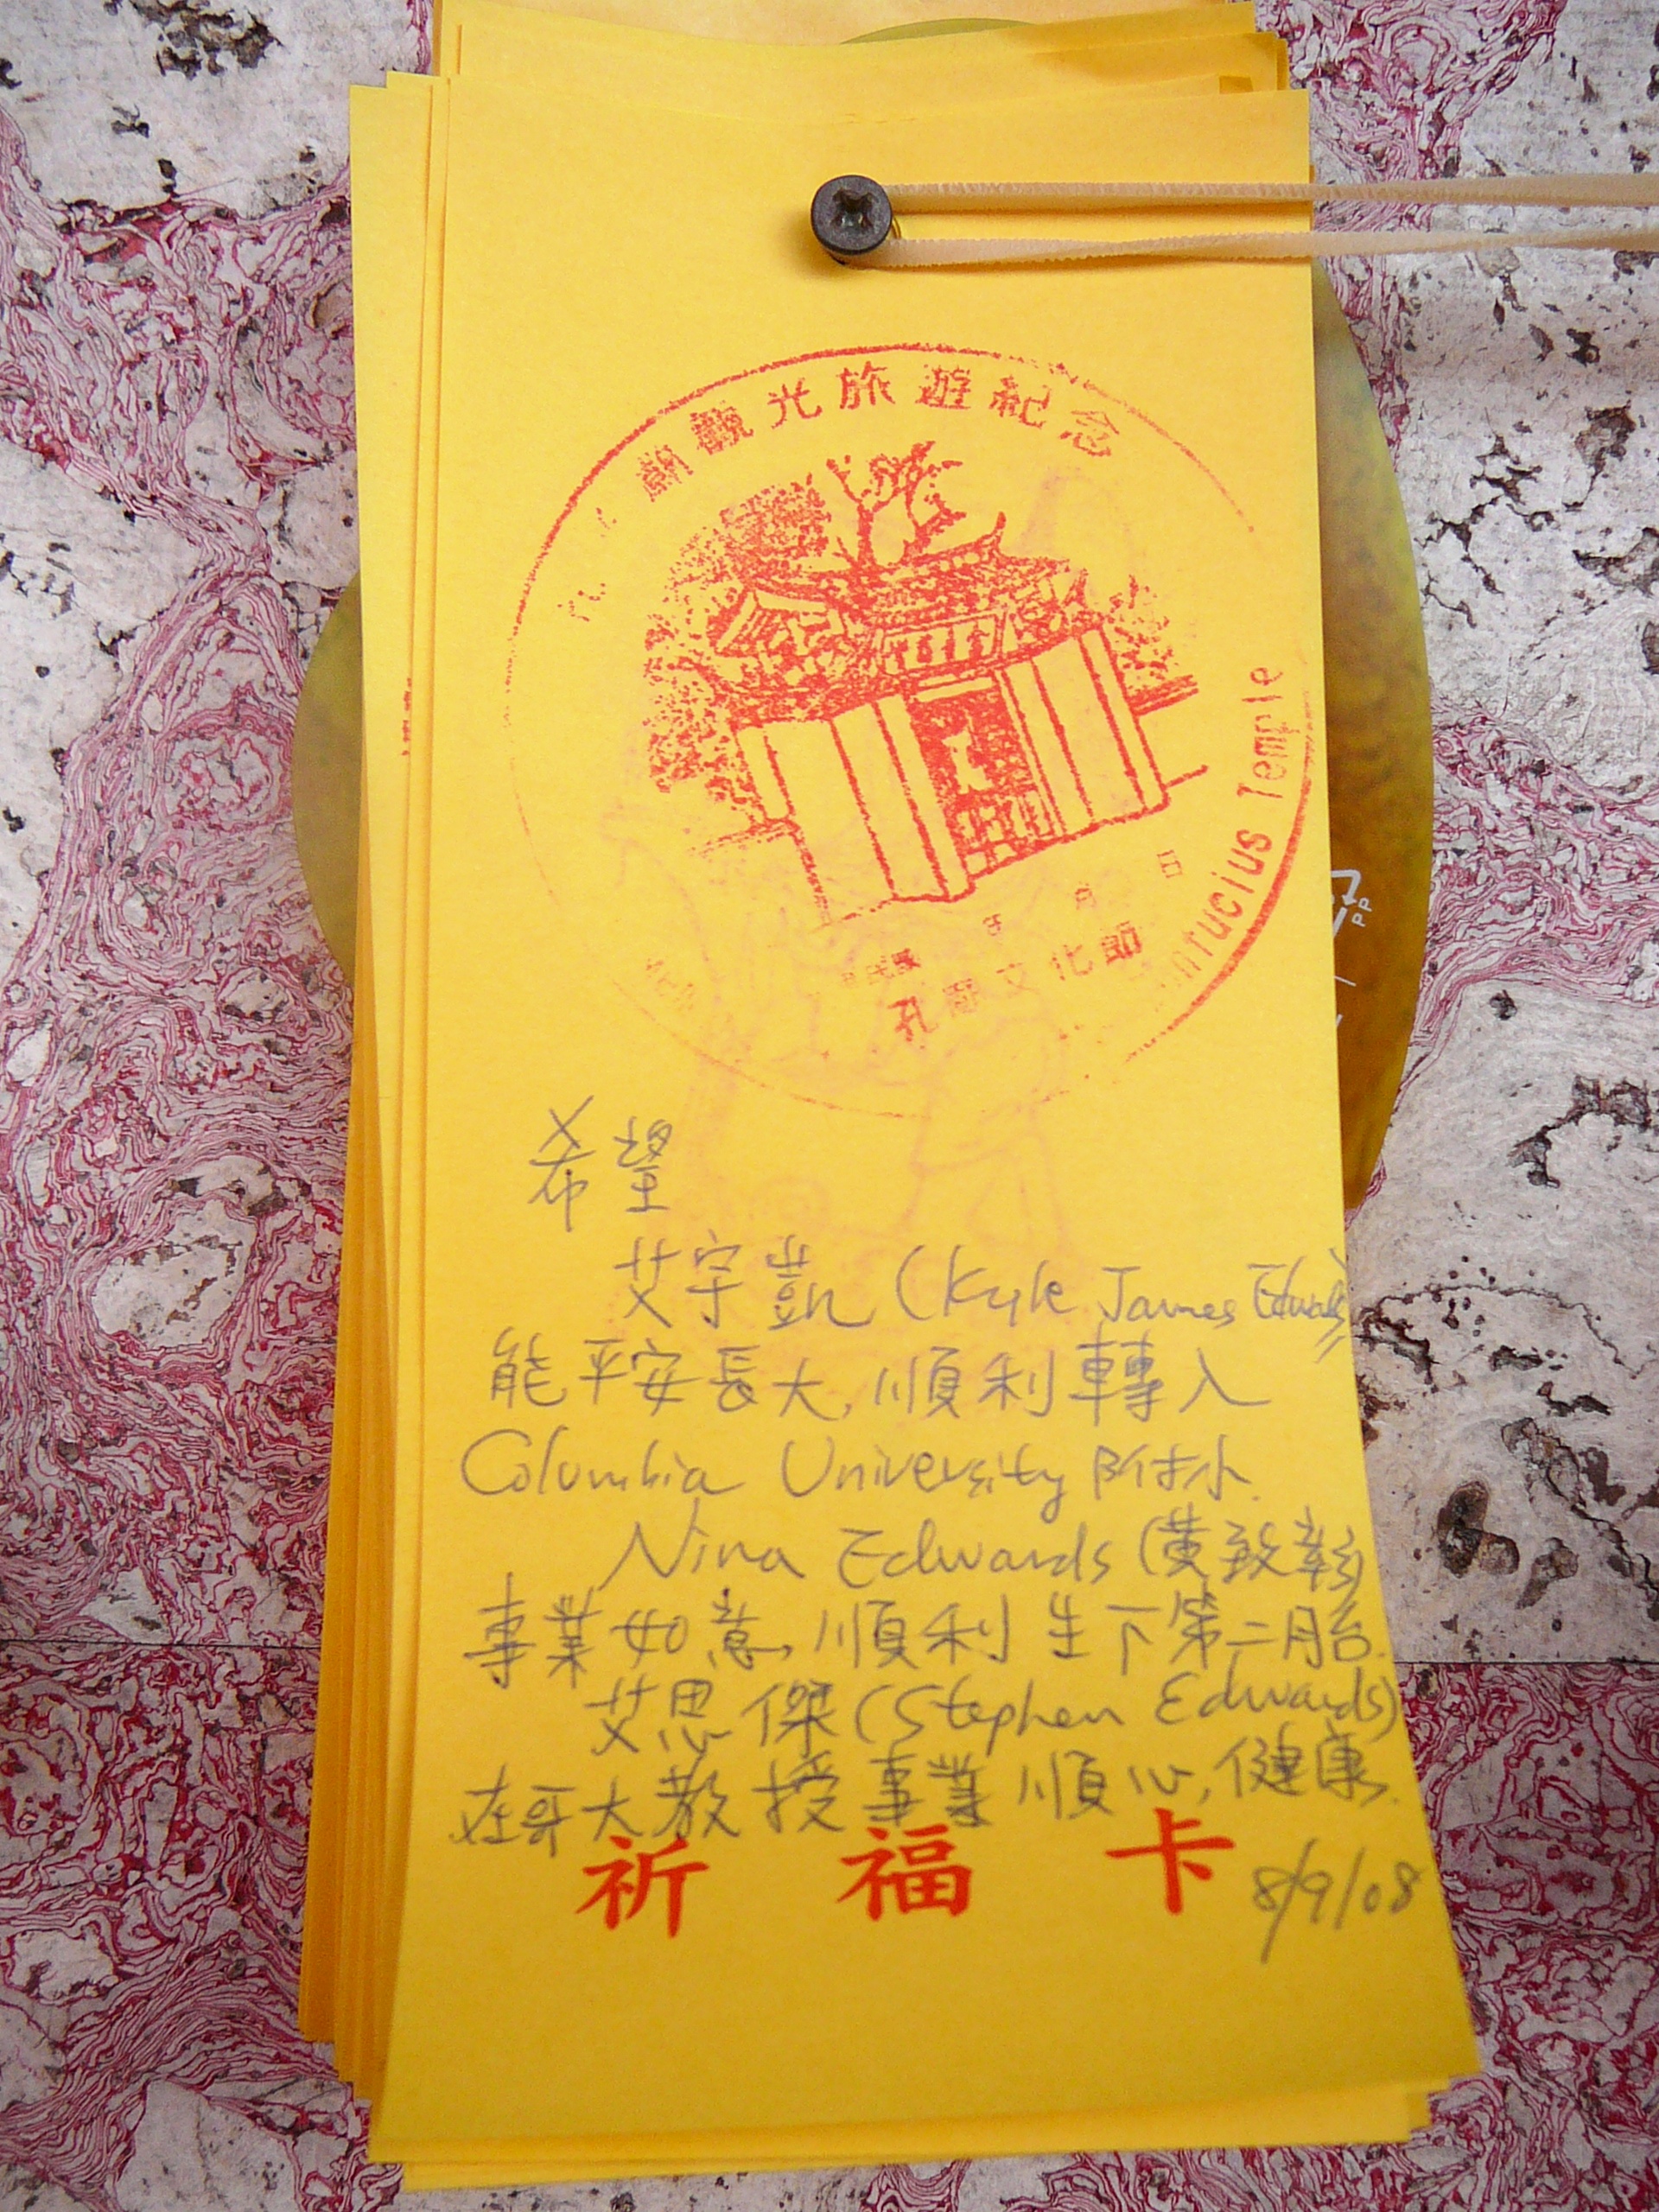 廟觀光旅遊紀念
Temple
年 月 日
孔廟文化節
希望
艾宇凱 (Kyle James Edwards)
能平安長大, 順利轉入
Columbia University 附小.
Nina Edwards (黃致
事業如意, 順利生下第二胎.
艾思傑 (Stephen Edwards)
在哥大教授事業順心, 健康.
祈福卡
8/9/08